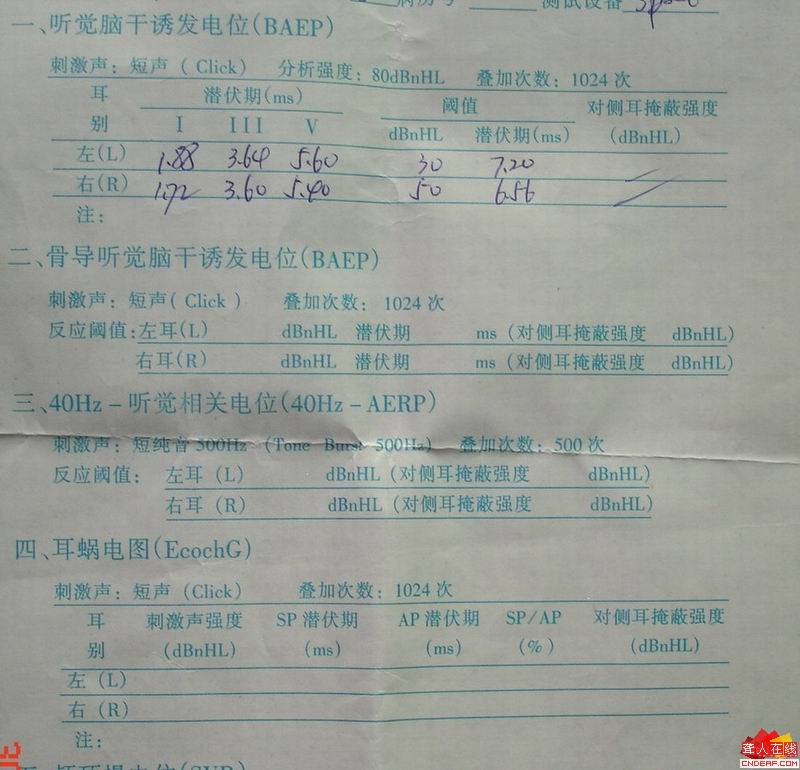 测试设备
一、听觉脑干诱发电位(BAEP)
刺激声: 短声 ( Click) 分析强度: 80dBnHL 叠加次数: 1024 次
耳 潜伏期(ms) 阈值 对侧耳掩蔽强度
别 I III V dBnHL 潜伏期(ms) (dBnHL)
左(L) 1.88 3.64 5.60 30 7.20
右(R) 1.72 3.60 5.40 50 6.56
注:
二、骨导听觉脑干诱发电位(BAEP)
刺激声: 短声( Click ) 叠加次数: 1024 次
反应阈值:左耳(L) dBnHL 潜伏期 ms (对侧耳掩蔽强度 dBnHL)
右耳(R) dBnHL 潜伏期 ms (对侧耳掩蔽强度 dBnHL)
三、40Hz-听觉相关电位(40Hz-AERP)
刺激声: 短纯音 500Hz (Tone Burst 500Hz) 叠加次数: 500 次
反应阈值: 左耳 (L) dBnHL (对侧耳掩蔽强度 dBnHL)
右耳 (R) dBnHL (对侧耳掩蔽强度 dBnHL)
四、耳蜗电图(EcochG)
刺激声: 短声 (Click) 叠加次数: 1024 次
耳 刺激声强度 SP 潜伏期 AP 潜伏期 SP/AP 对侧耳掩蔽强度
别 (dBnHL) (ms) (ms) (%) (dBnHL)
左 (L)
右 (R)
注:
聋人在线
CNDEAF.COM